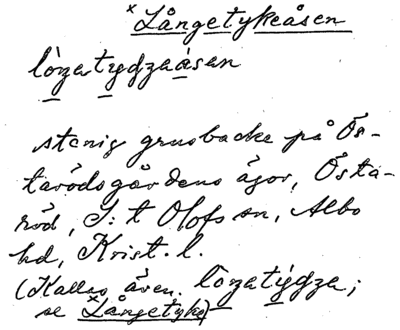 × Långetykeåsen
lòŋatydzaåsan
stenig grusbacke på Ös-
tarödsgårdens ägor, Östa-
röd, S:t Olofs sn, Albo
hd, Krist. l.
(Kallas även lòŋatýdza;
se × Långetyke)